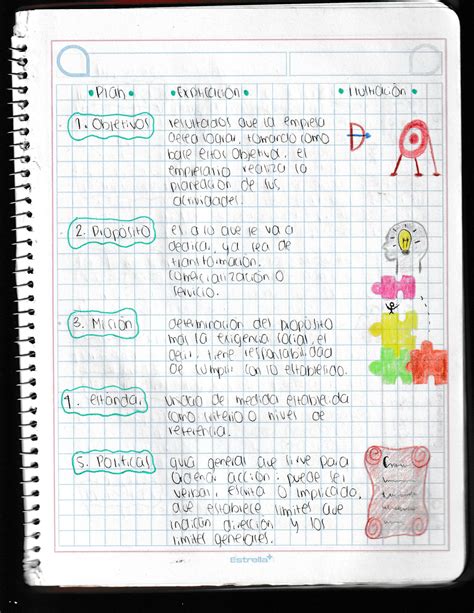 • Plan •
• Explicación •
• Ilustración •
1. Objetivos
resultados que la empresa
desea lograr, tomando como
base estos objetivos. el
empresario realiza la
planeación de sus
actividades.
2. Propósito
es a lo que se va a
dedicar, ya sea de
transformación,
comercialización o
servicio.
3. Misión
determinación del propósito
más la exigencia social, es
decir, tiene responsabilidad
de cumplir con lo establecido.
4. estándar
unidad de medida establecida
como criterio o nivel de
referencia.
5. Políticas
guía general que sirve para
ordenar acción: puede ser
verbal, escrita o implicada,
que establece límites que
indican dirección y los
límites generales.
Estrella